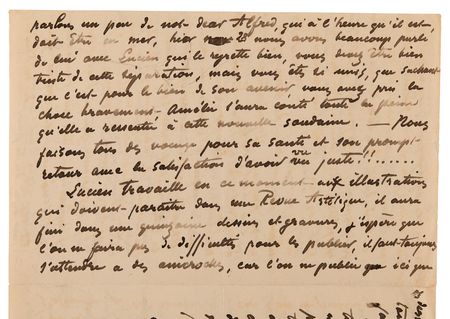 parlons un peu de not- dear Alfred, qui à l'heure qu'il est,
doit être en mer, hier nous avons beaucoup parlé
de lui avec Lucien qui le regrette bien, vous devez être bien
triste de cette séparation, mais vous êtes si sage, que sachant
que c'est pour le bien de son avenir vous avez pris la
chose bravement. Amélie t'aura conté toute la peine
qu'elle a ressentie à cette nouvelle soudaine. — Nous
faisons tous des voeux pour sa santé et son prompt-
retour avec la satisfaction d'avoir vu juste!!......
Lucien travaille en ce moment aux illustrations
qui doivent paraître dans une Revue Artistique, il aura
fini dans une quinzaine dessins et gravures, j'espère que
l'on ne faira pas de difficultés pour les publier, il faut toujours
s'attendre à des anicroches, car l'on ne publie que ici que